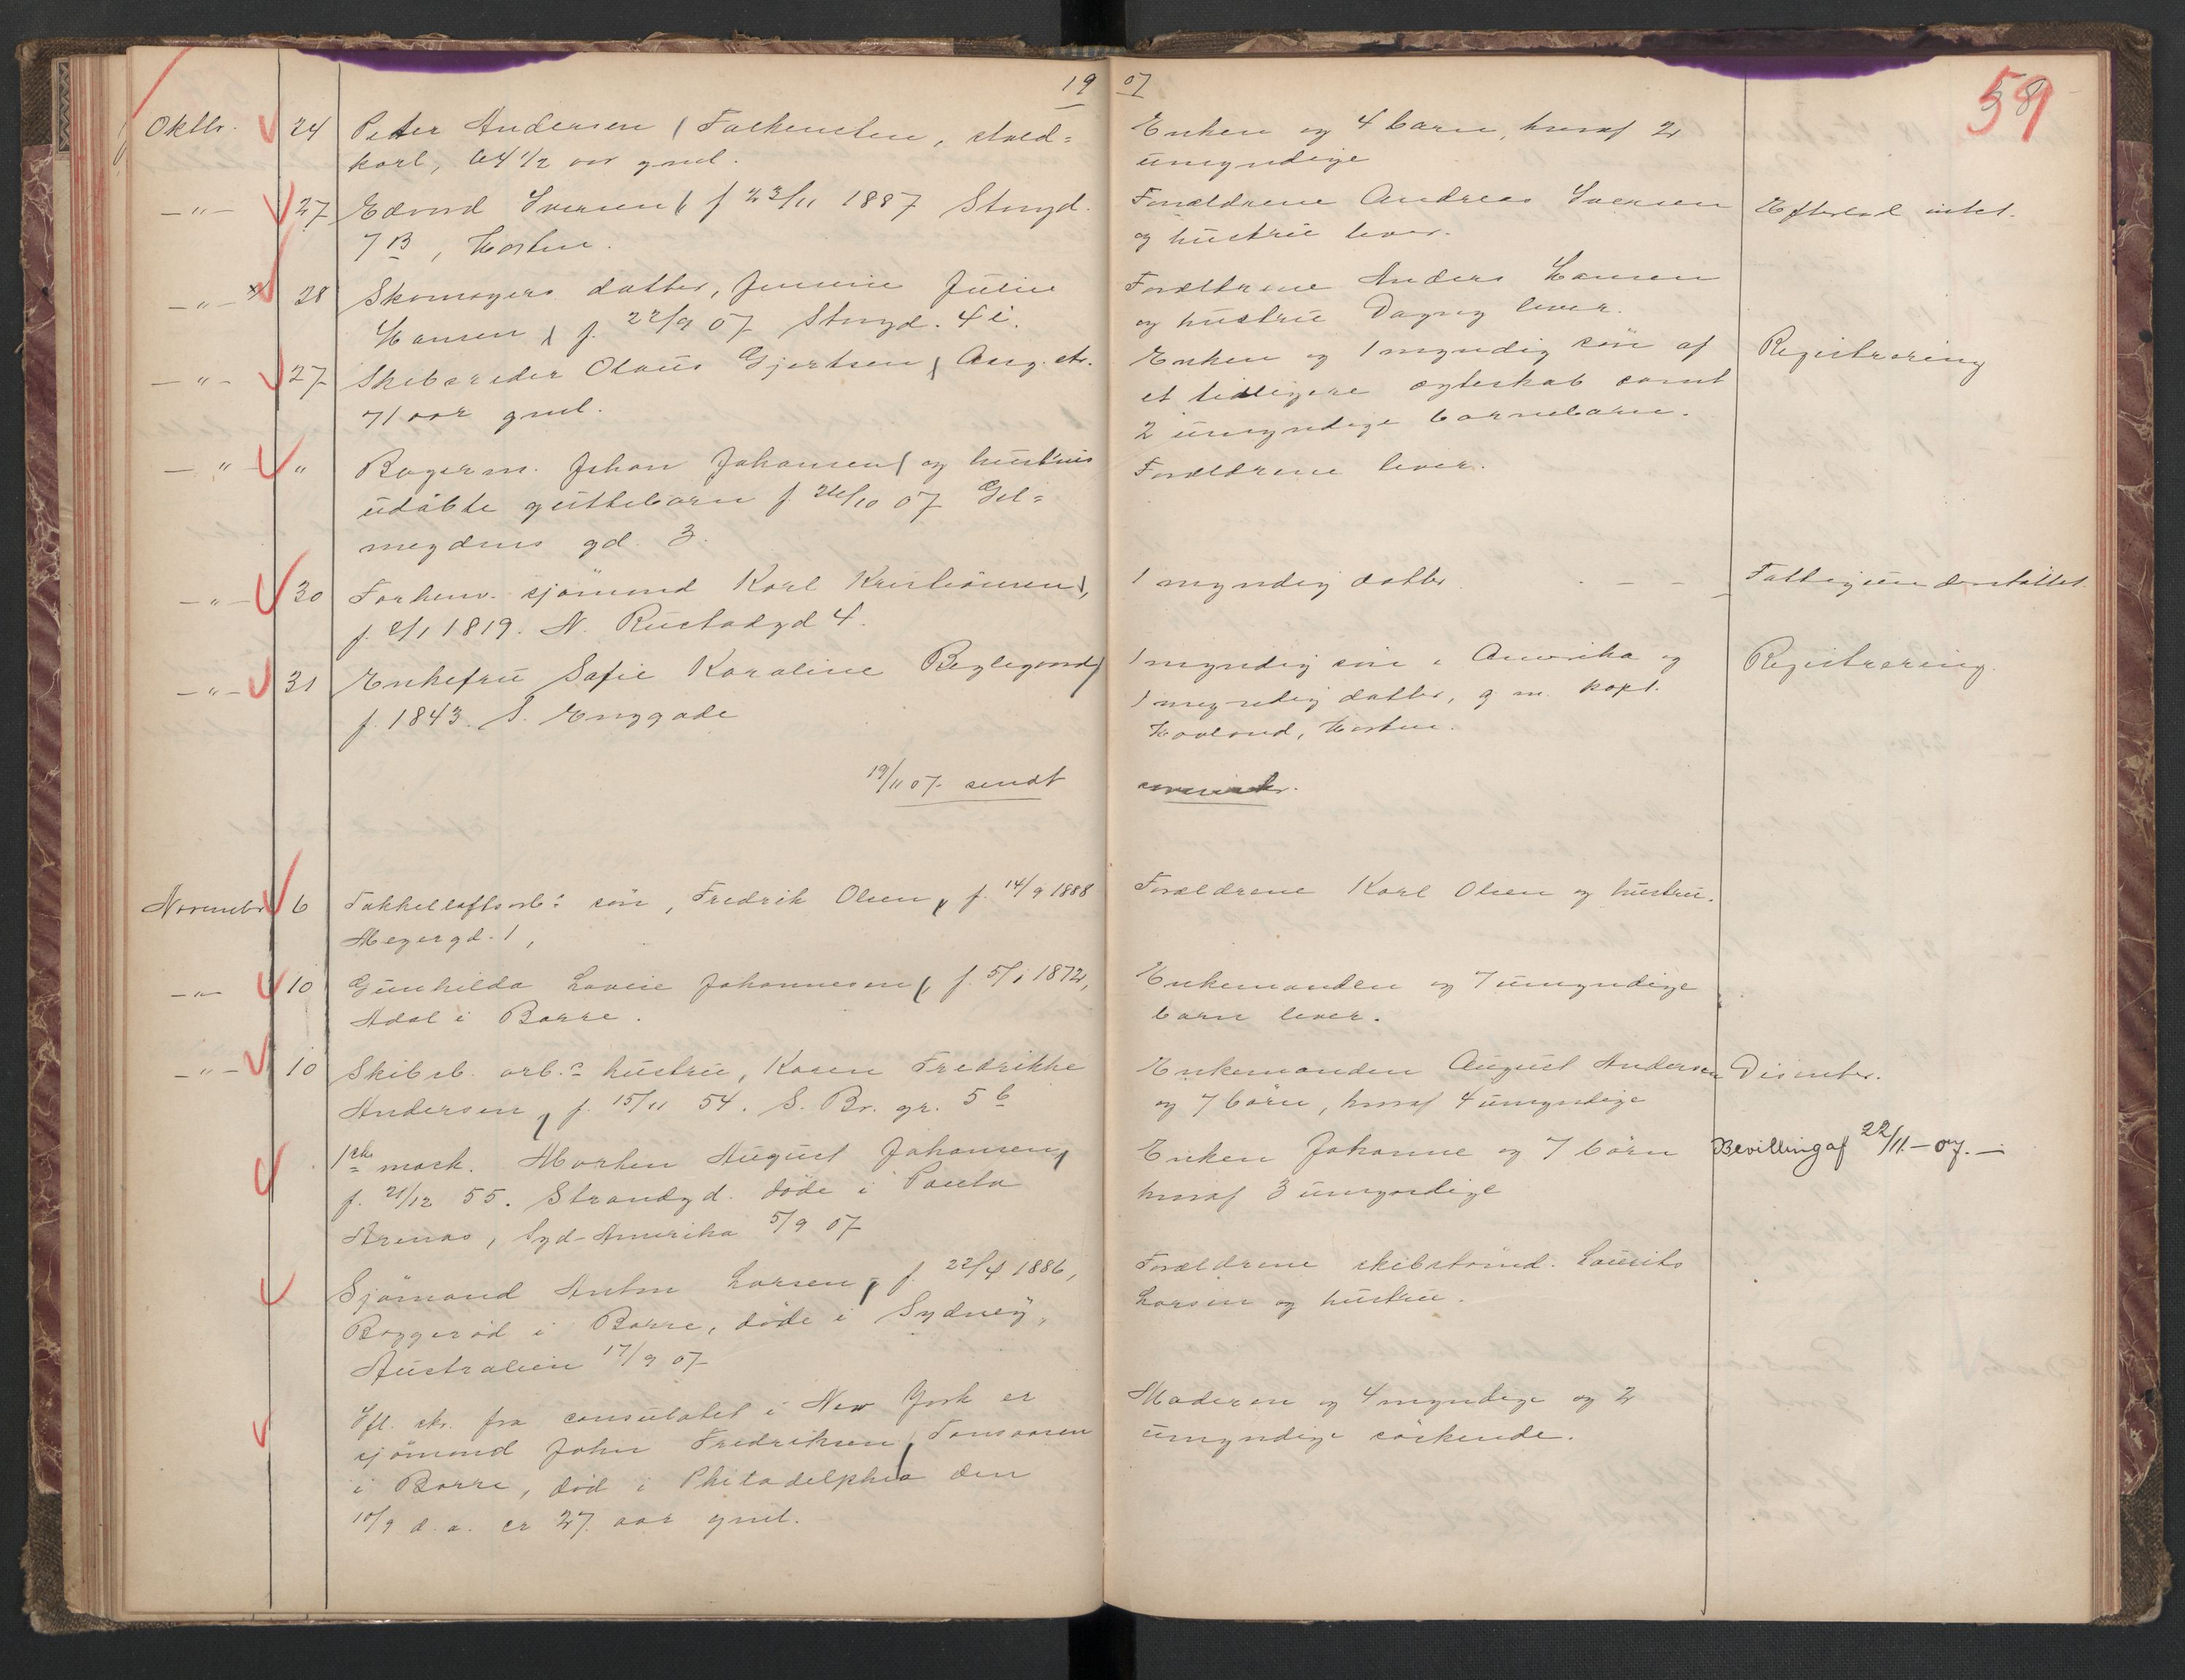 19 07
59
Oktbr. 24 Peter Andersen, Falkensten, stald=
karl, 64 1/2 aar gml.
Enken og 4 barn, hvoraf 2
umyndige
-"- 27 Edvard Iversen f 23/11 1887 Stngd.
7B, Horten.
Forældrene Andreas Iversen
og hustru lever.
Efterlod intet.
-"- 28 Skomagers datter, Jennie Julie
Hansen, f. 22/9 07 Stngd. 4 i.
Forældrene Anders Hansen
og hustru Dagny lever.
-"- 27 Skibsreder Olaus Gjertsen, Aasg. str.
71 aar gml.
Enken og 1 myndig sön af
et tidligere ægteskab samt
2 umyndige barnebarn.
Registrering
-"- " Bagerm. Johan Johansen og hustrus
udöbte guttebarn f. 26/10 07
gd. 3.
Forældrene lever.
-"- 30 Forhenv. sjömand Karl Kristiansen,
f. 8/1 1819. N. Rustadgd 4.
1 myndig datter - -
Fattigunderstöttet.
-"- 31 Enkefru Sofie Karoline
f. 1843. S. Enggade
1 myndig sön i Amerika og
1 myndig datter, g. m. kapt.
Hovland, Horten.
Registrering.
19/11 07. sendt
November 6 Takkelloftsarb.s sön, Fredrik Olsen, f. 14/9 1888
Meyergd. 1,
Forældrene Karl Olsen og hustru.
-"- 10 Gunhilda Lovise Johannesen, f. 5/1 1872,
Adal i Borre.
Enkemanden og 7 umyndige
barn lever.
-"- 10 Skibsb. arb.s hustru, Karen Fredrikke
Andersen, f. 15/11 54. S. Br. gr. 5 b
Enkemanden August Andersen
og 7 börn, hvoraf 4 umyndige
1ste mask. Morten August Johansen,
f. 21/12 55. Strandgd. döde i Punta
Arenas, Syd-Amerika 5/9 07
Enken Johanne og 7 börn
hvoraf 3 umyndige
Bevilling af 22/11 - 07. -
Sjömand Anton Larsen, f. 22/4 1886,
i Borre, döde i Sydney,
Australien 17/9 07
Forældrene skibstömd. Lauritz
Larsen og hustru.
Ifl. skr. fra consulatet i New York er
sjömand John Fredriksen,
i Borre, död i Philadelphia den
10/9 d. a. ca 27 aar gml.
Moderen og 4 myndige og 2
umyndige söskende.